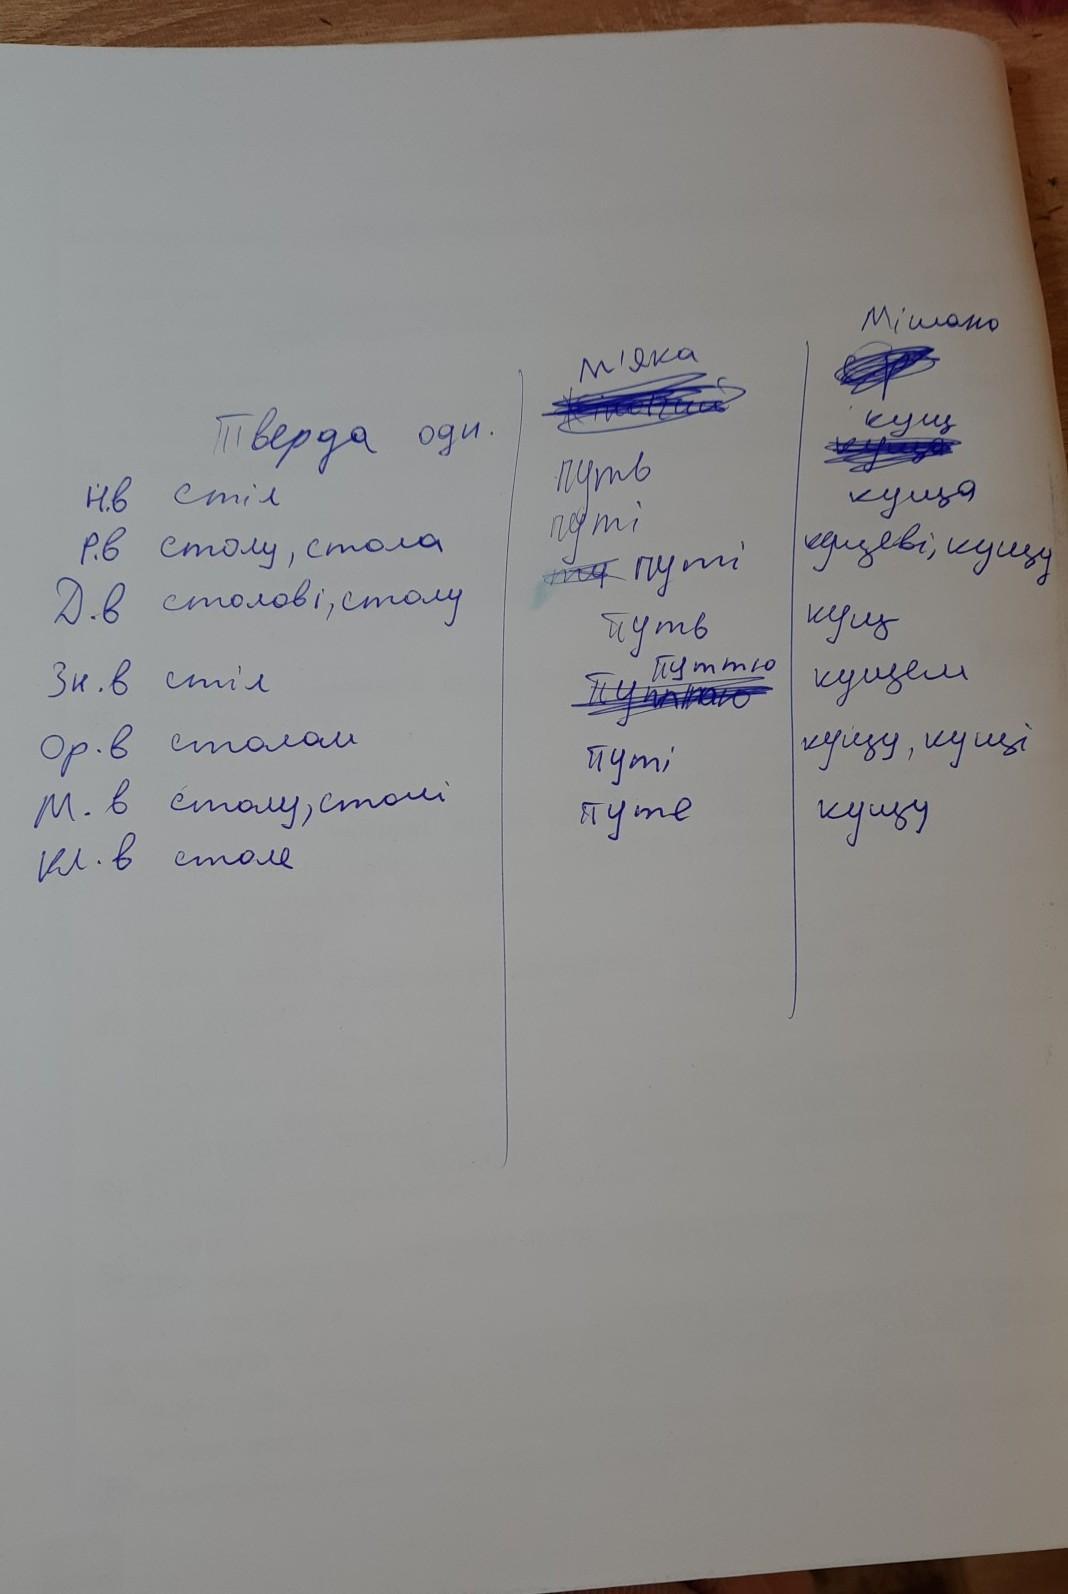 Мішано
м'яка
Тверда одн.
кущ
Н.в стіл
путь
куща
Р.в столу, стола
путі
кущеві, кущу
Д.в столові, столу
путі
кущ
Зн.в стіл
путь
кущем
Ор.в столом
путтю
кущу, кущі
М.в столу, столі
путі
кущу
Кл.в столе
путе